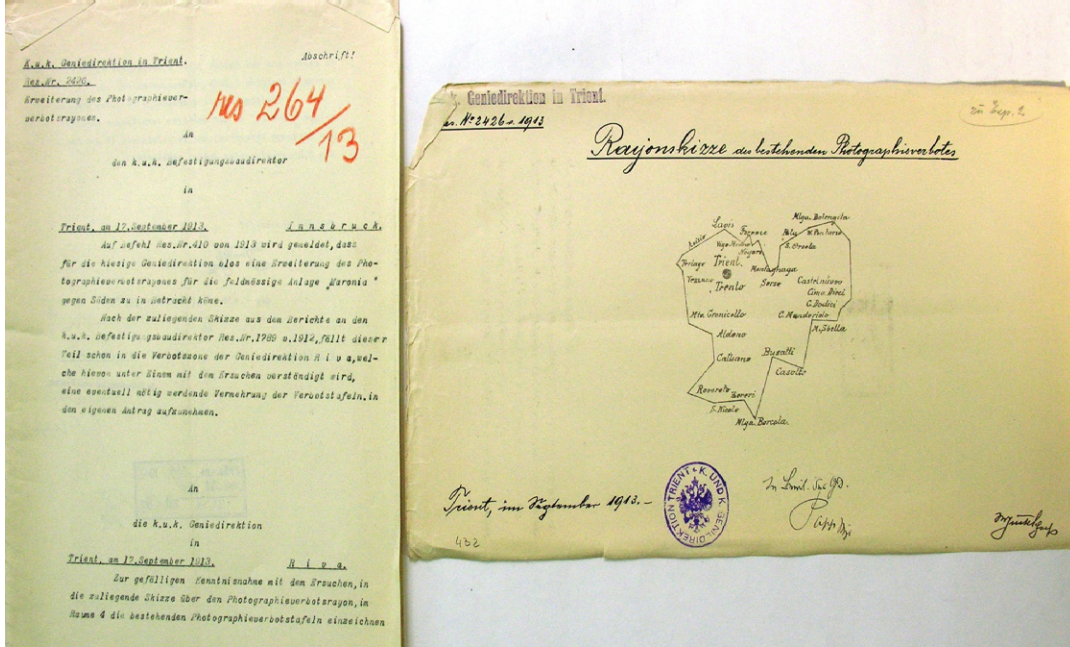 K.u.k. Geniedirektion in Trient.
Abschrift!
Res.Nr. 2426.
Erweiterung des Photographiever-
verbotsrayones.
res 264/13
An
den k.u.k. Befestigungsbaudirektor
in
Trient, am 17.September 1913.
Innsbruck.
Auf Befehl Res.Nr.410 von 1913 wird gemeldet, dass
für die hiesige Geniedirektion blos eine Erweiterung des Pho-
tographieverbotsrayones für die feldmässige Anlage "Maronia"
gegen Süden zu in Betracht käme.
Nach der zuliegenden Skizze aus dem Berichte an den
k.u.k. Befestigungsbaudirektor Res.Nr.1789 v.1912, fällt dieser
Teil schon in die Verbotszone der Geniedirektion Riva, wel-
che hievon unter Einem mit dem Ersuchen verständigt wird,
eine eventuell nötig werdende Vermehrung der Verbotstafeln, in
den eigenen Antrag aufzunehmen.
An
die k.u.k. Geniedirektion
in
Trient, am 17.September 1913.
Riva.
Zur gefälligen Kenntnisnahme mit dem Ersuchen, in
die zuliegende Skizze über den Photographieverbotsrayon, in
Raume 4 die bestehenden Photographieverbotstafeln einzeichnen
Geniedirektion in Trient.
Nº 2426 v. 1913
Rayonskizze des bestehenden Photographieverbotes
Mlga. Balengela
Lavis
Fornace
S. Orsola
Vigo
Terlago
Trient.
Montagnaga
Trento
Serso
Castelnuovo
Cima Dieci
C. Dodici
C. Manderiolo
Aldeno
Calliano
Busatti
Casotto
Rovereto
S. Nicolo
Mlga. Borcola.
Trient, im September 1913.-
K. UND K. GENIEDIREKTION TRIENT
432